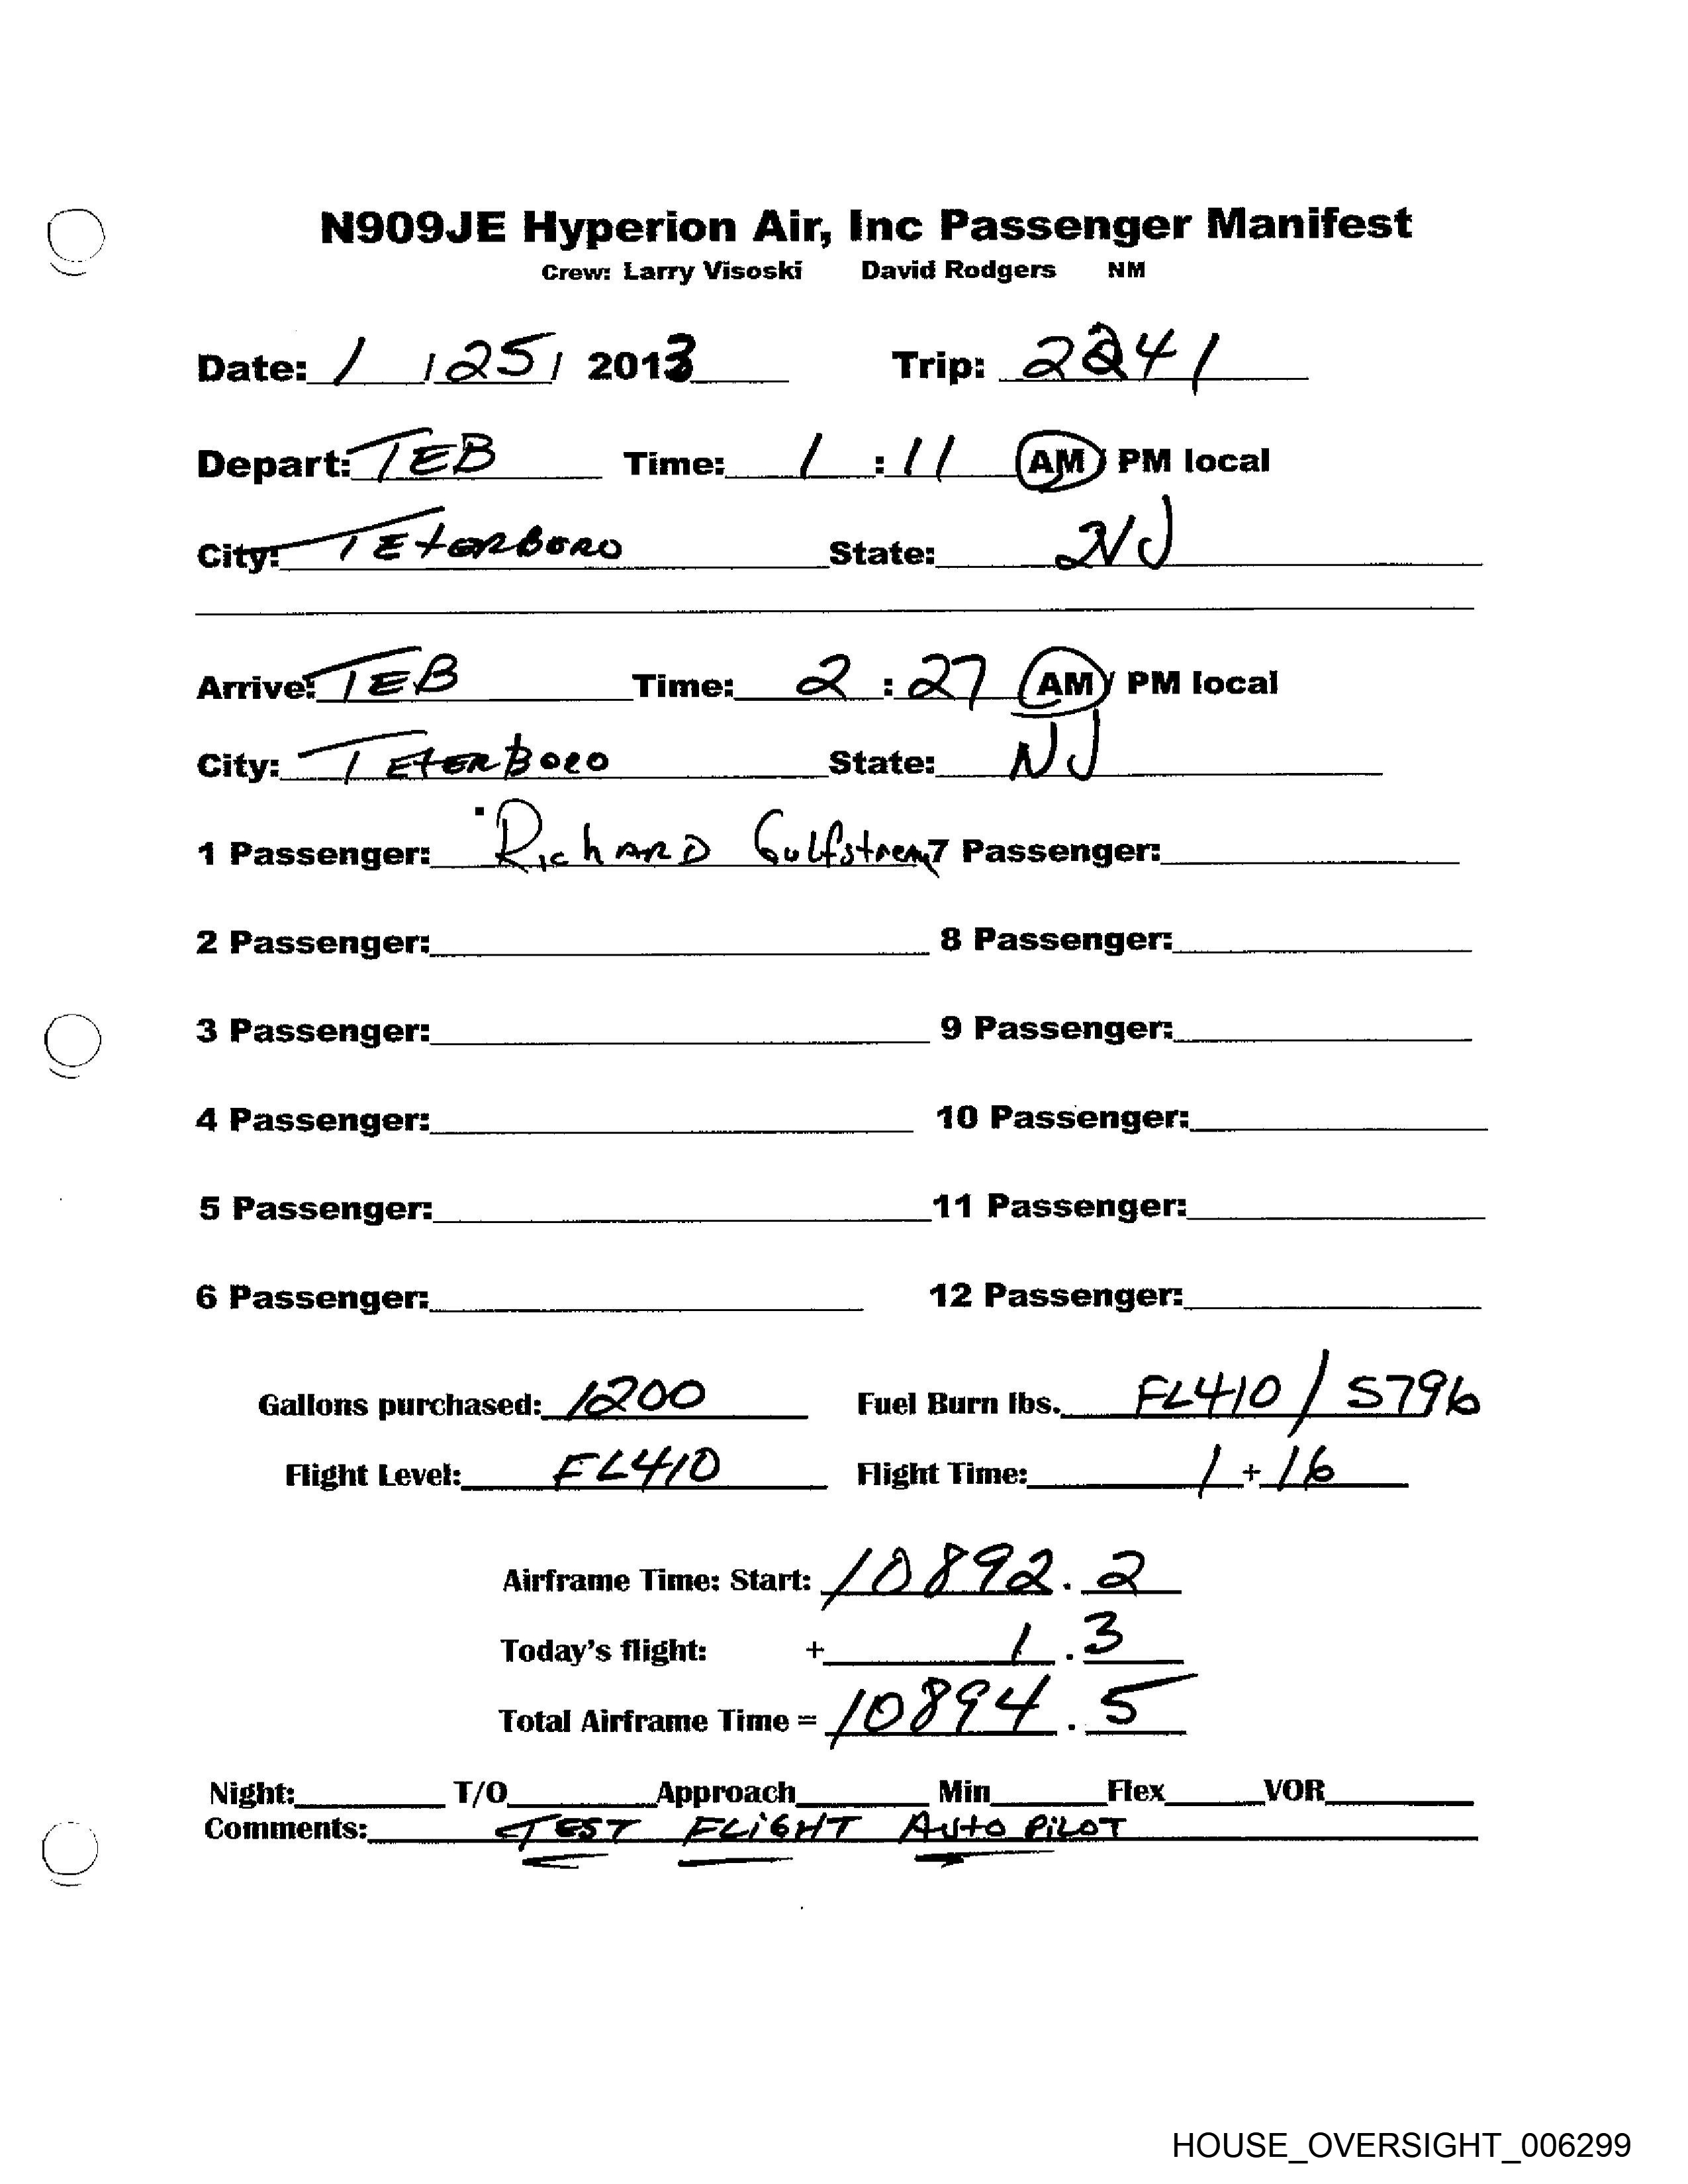 N909JE Hyperion Air, Inc Passenger Manifest
Crew: Larry Visoski David Rodgers NM
Date: 1 / 25 / 2013 Trip: 2241
Depart: TEB Time: 1 : 11 AM / PM local
City: TEtERBORO State: NJ
Arrive: TEB Time: 2 : 27 AM / PM local
City: TEtERBoro State: NJ
1 Passenger: RichARD Gulfstream 7 Passenger:
2 Passenger: 8 Passenger:
3 Passenger: 9 Passenger:
4 Passenger: 10 Passenger:
5 Passenger: 11 Passenger:
6 Passenger: 12 Passenger:
Gallons purchased: 1200 Fuel Burn lbs. FL410 / 5796
Flight Level: FL410 Flight Time: 1 + 16
Airframe Time: Start: 10892.2
Today's flight: + 1.3
Total Airframe Time = 10894.5
Night: T/O Approach Min Flex VOR
Comments: TEST FLiGHT AUto PiLOT
HOUSE_OVERSIGHT_006299